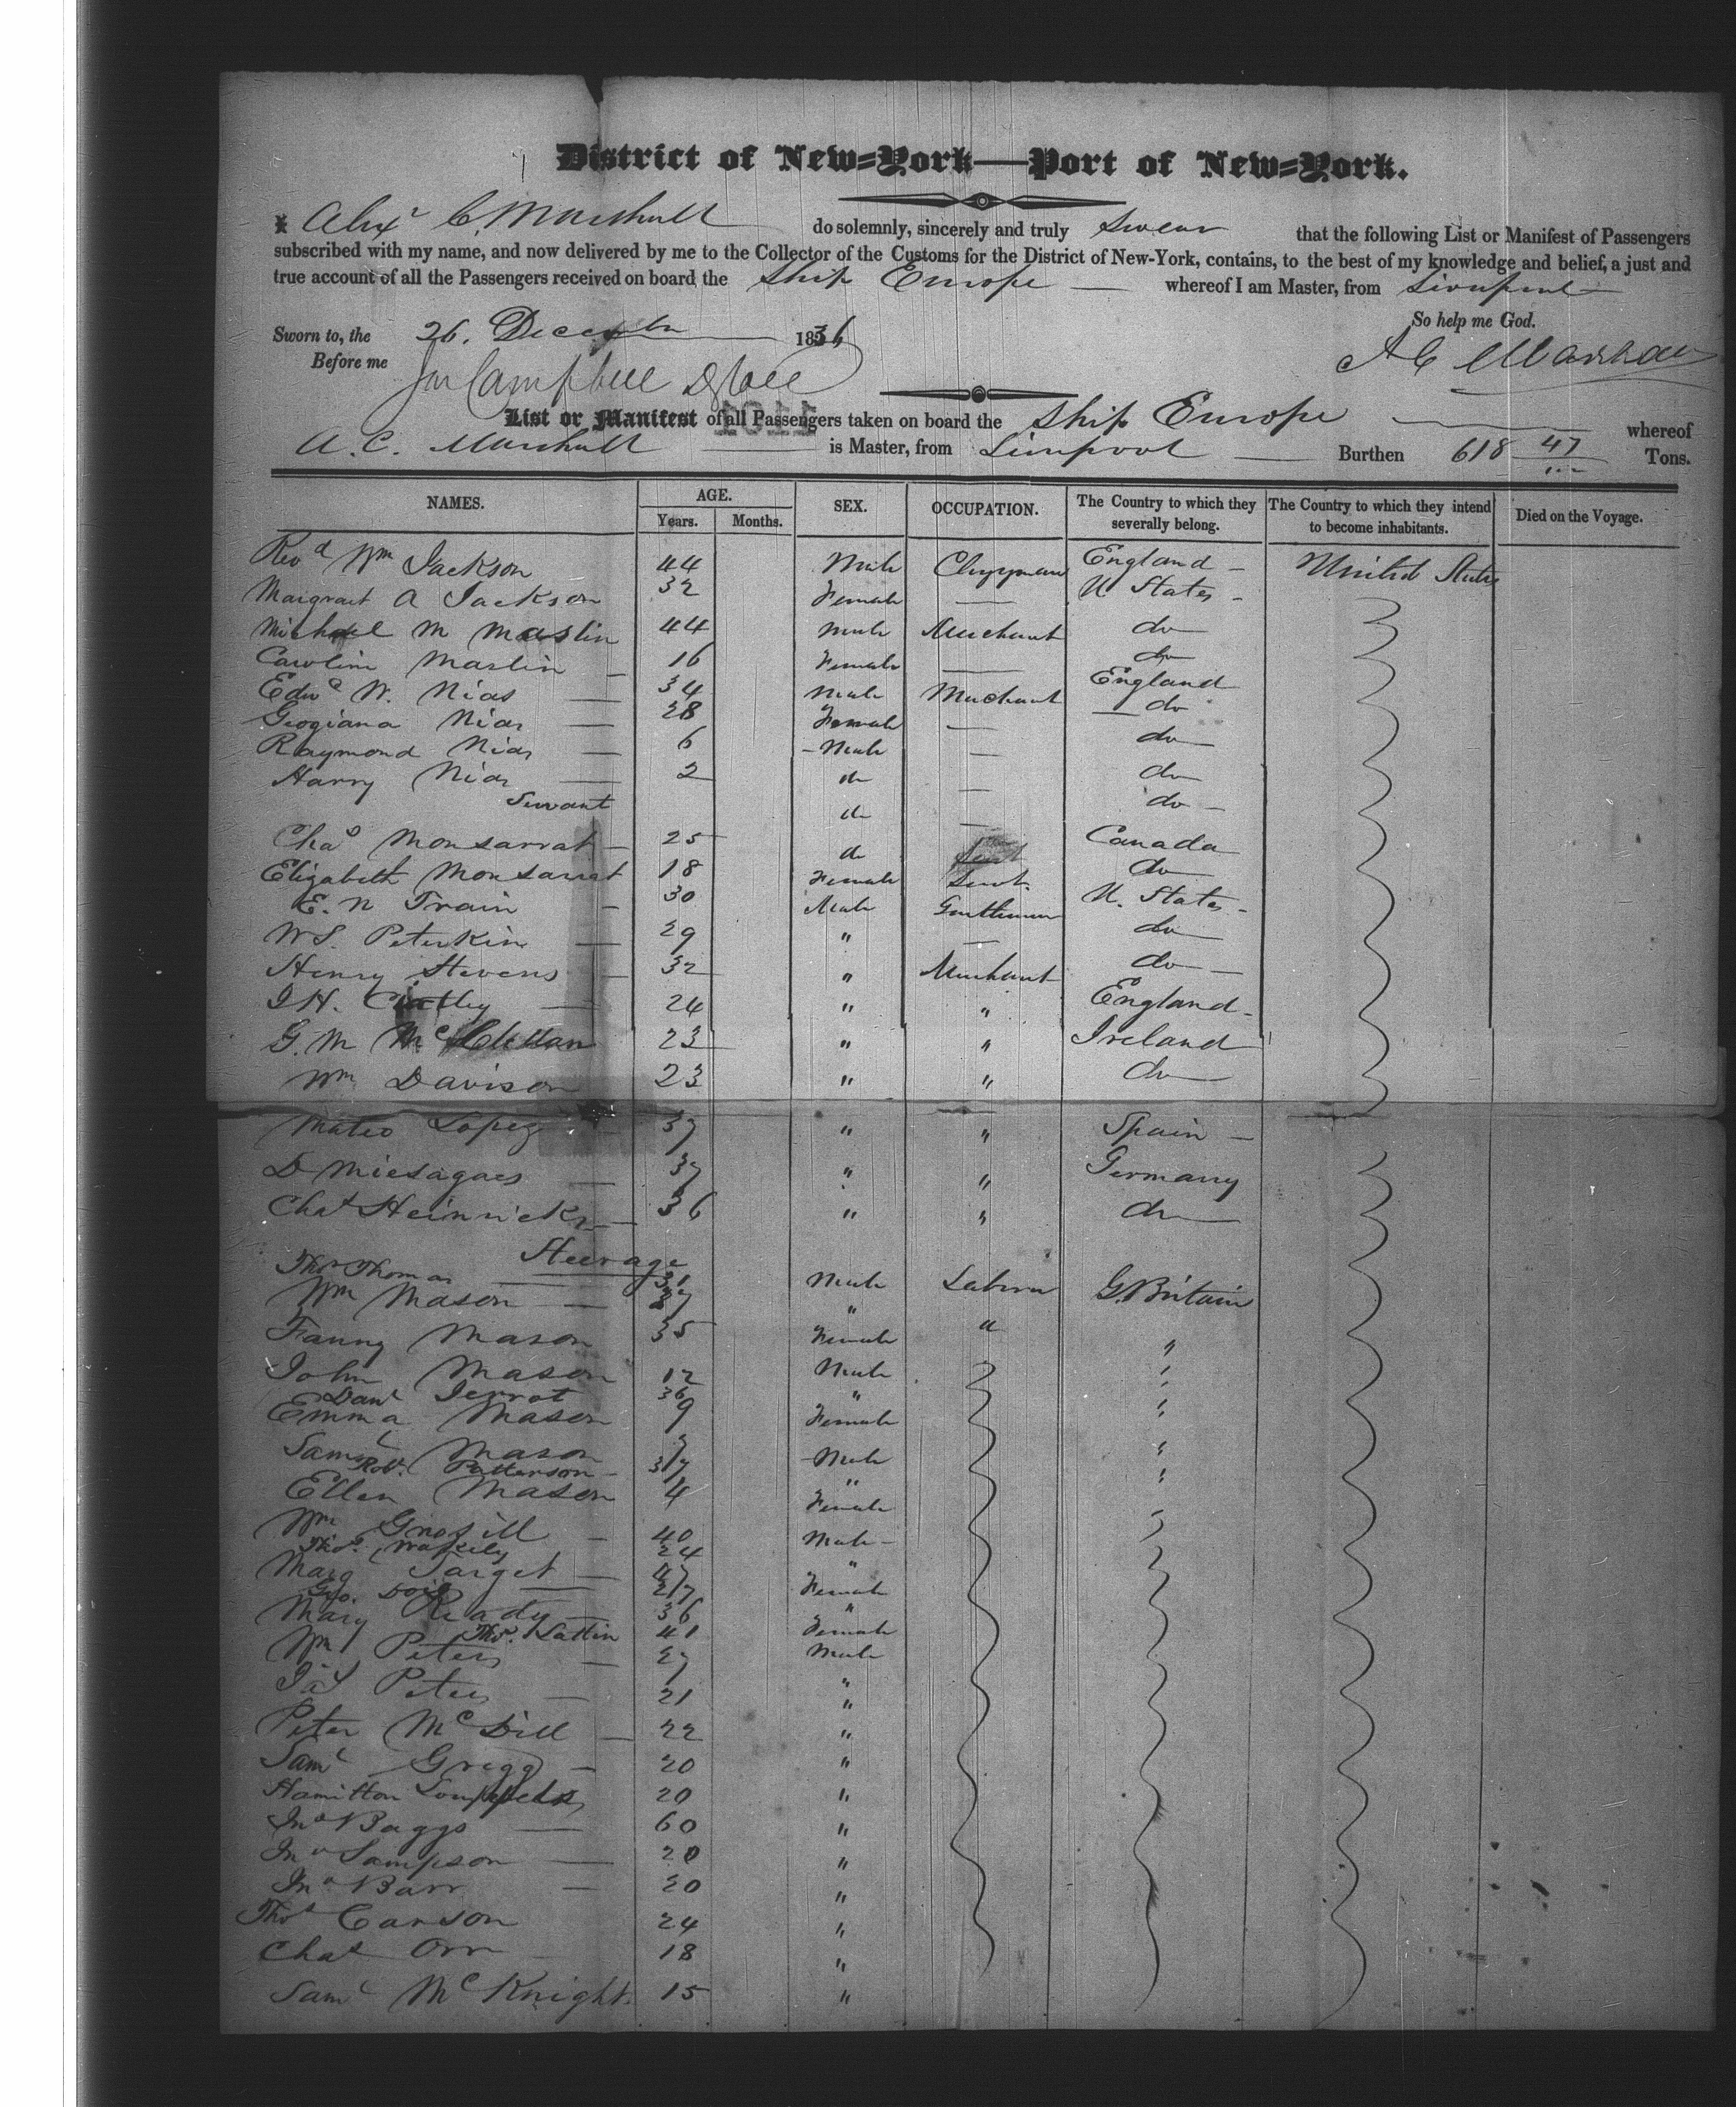 District of New-York—Port of New-York.
I Alexr C. Marshall do solemnly, sincerely and truly Swear that the following List or Manifest of Passengers
subscribed with my name, and now delivered by me to the Collector of the Customs for the District of New-York, contains, to the best of my knowledge and belief, a just and
true account of all the Passengers received on board the Ship Europe — whereof I am Master, from Liverpool
So help me God.
Sworn to, the 26. December 1836
Before me A C Marshall
Jn Campbell D Coll
List or Manifest of all Passengers taken on board the Ship Europe whereof
A. C. Marshall is Master, from Liverpool Burthen 618 47 Tons.
NAMES. AGE. SEX. OCCUPATION. The Country to which they severally belong. The Country to which they intend to become inhabitants. Died on the Voyage.
Years. Months.
Revd Wm Jackson 44 Male Clergyman England - United States
Margraet A Jackson 32 Female — U States -
Michael M Maslin 44 Male Merchant do
Caroline Maslin 16 Female — do
Edwd W. Nias 34 Male Merchant England
Geogiana Nias 28 Female — do
Raymond Nias 6 Male — do
Harry Nias 2 do — do
Servant do — do
Chas Monsarrat 25 do Canada
Elizabeth Monsarrat 18 Female Servt. do
E. N Train 30 Male Gentleman U. States -
W S. Peterkin 29 " — do
Henry Stevens 32 " Merchant do
J H. 24 " " England -
G. M McClellan 23 " " Ireland
Wm Davison 23 " " do
Mateo Lopez 37 " " Spain -
D Miesagaes 37 " " Germany
Chas Heinricks 36 " " do
Steerage
Thos Thomas 31 Male Labourer G. Britain
Wm Mason 37 " "
Fanny Mason 35 Female "
John Mason 12 Male "
Danl Jerrot 36 " "
Emma Mason 9 Female "
Saml Mason 7 Male "
Robt. Patterson 37 " "
Ellen Mason 4 Female
Wm 40 Male
Thos. Wakely 24 "
Marg Target 47 Female
Geo. 27 "
Mary Ready 36 Female
Thos. Lattin 41 Male
Wm Peters 27 "
Jas Peters 21 "
Peter McDill 22 "
Saml Gregg 20 "
Hamilton 20 "
Jno Baggs 60 "
Jno Sampson 20 "
Jno Barr 20 "
Thos Carson 24 "
Chas Orr 18 "
Saml McKnight 15 "